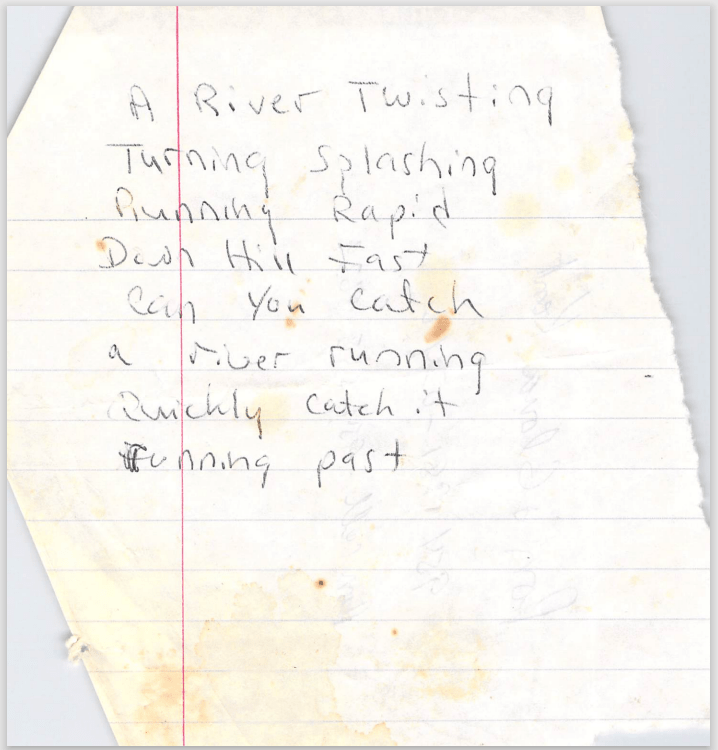 A River Twisting
Turning Splashing
Running Rapid
Down Hill Fast
Can You Catch
a river running
Quickly catch it
running past